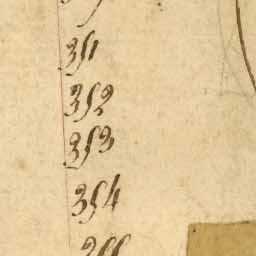 351
352
353
354
355